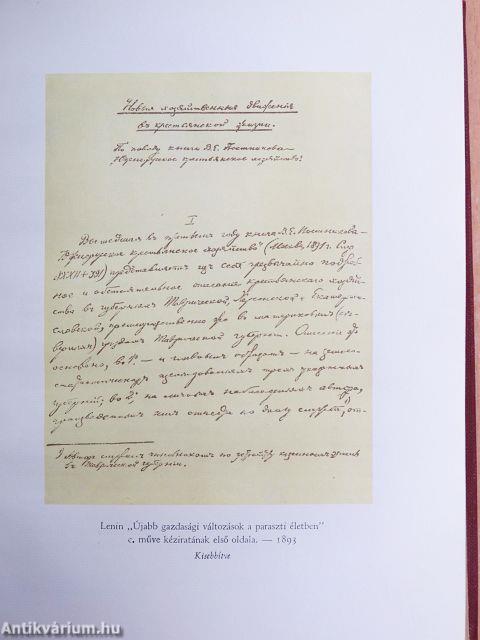 Новыя хозяйственныя движенія
въ крестьянской жизни.
По поводу книги В. Е. Постникова —
"Южнорусское крестьянское хозяйство".
I
Вышедшая въ году книга В. Е. Постникова
"Южнорусское крестьянское хозяйство" (Москва, 1891 г. Стр.
XXXII+391) представляетъ изъ себя чрезвычайно подроб-
ное и обстоятельное описаніе крестьянскаго хозяй-
ства въ губерніяхъ Таврической, Херсонской и Екатерино-
славской, преимущественно же въ материковыхъ (сѣ-
верныхъ) уѣздахъ Таврической губерніи. Описаніе это
основано, во 1хъ — и главнымъ образомъ — на земско-
статистическихъ изслѣдованіяхъ трехъ указанныхъ
губерній; во 2хъ, на личныхъ наблюденіяхъ автора,
произведенныхъ имъ отчасти по долгу службы,¹⁾ от-
¹⁾ Авторъ служилъ чиновникомъ по устройству казенныхъ земель
въ Таврической губерніи.
Lenin „Újabb gazdasági változások a paraszti életben”
c. műve kéziratának első oldala. — 1893
Kisebbítve
Antikvárium.hu